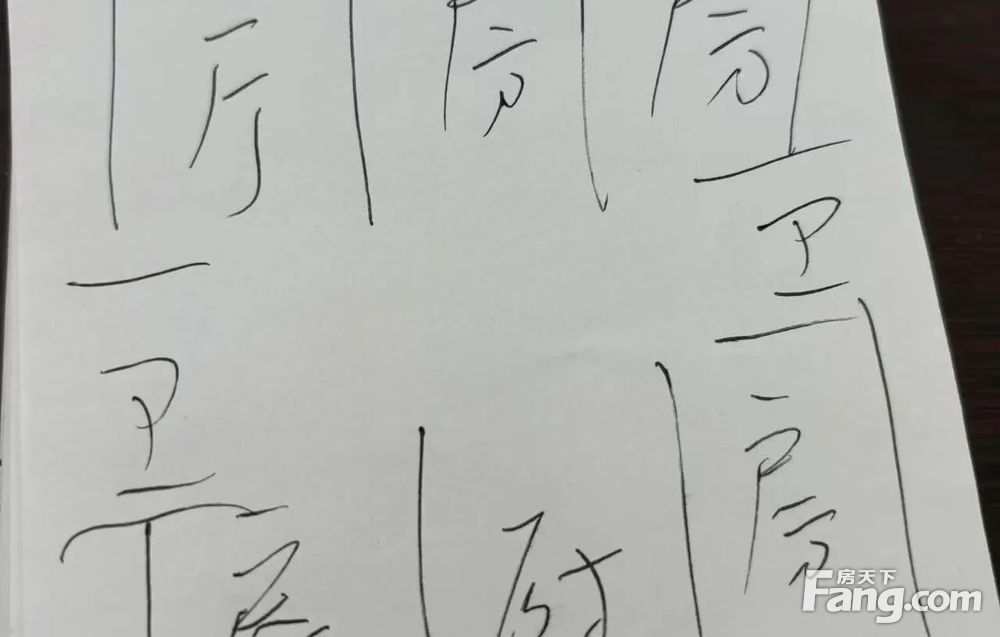 厅 房 房
卫
卫
房
房 厨
房天下
Fang.com